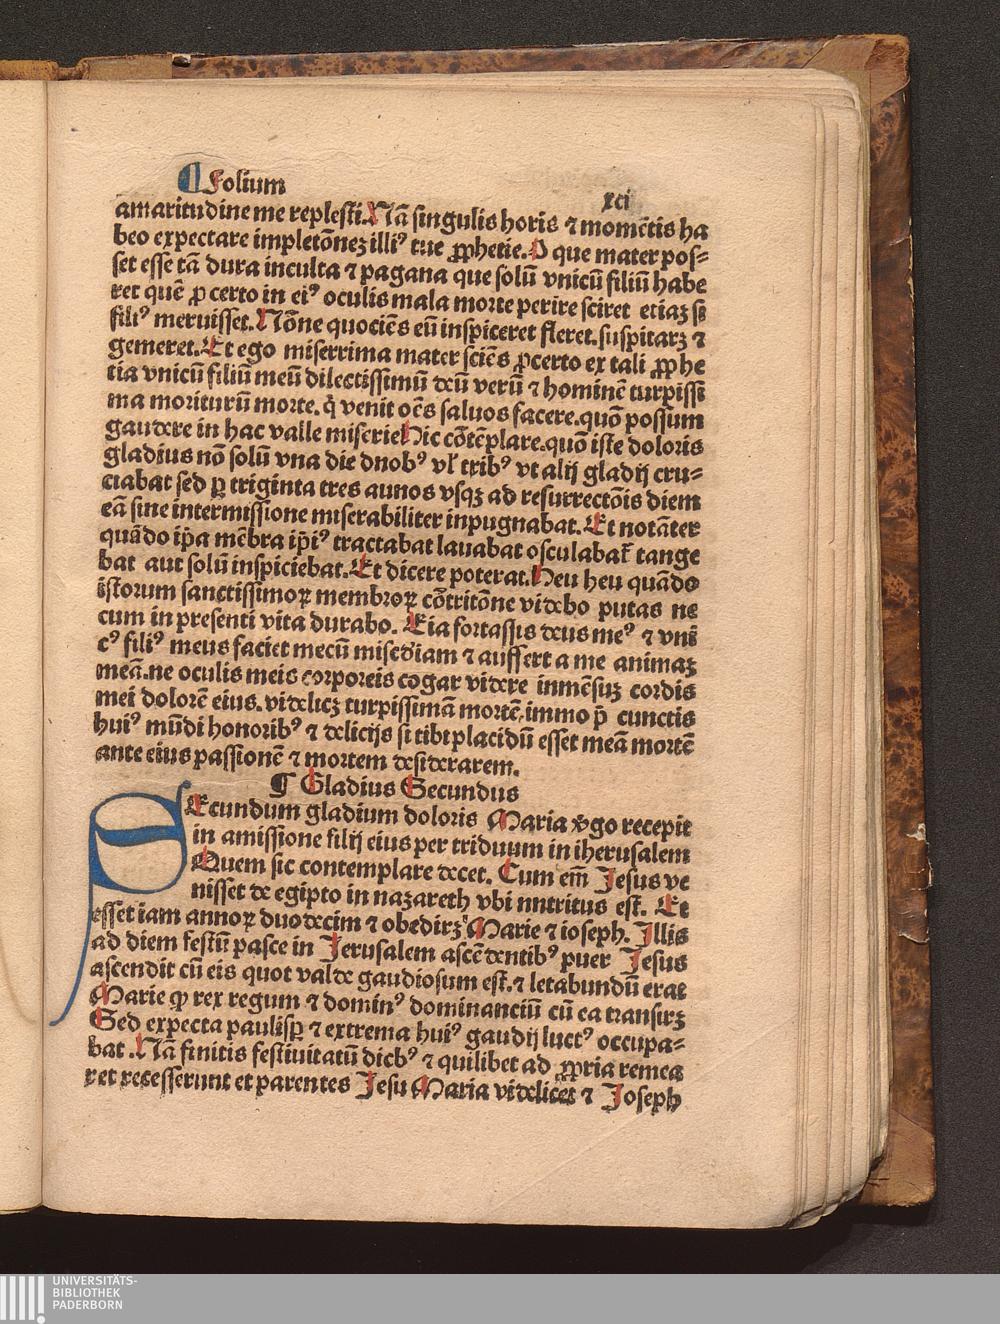 ¶ Folium xci
amaritudine me replesti. Nā singulis horis ⁊ momētis ha
beo expectare impletōnez illiꝰ tue ꝓphetie. O que mater pos⸗
set esse tā dura inculta ⁊ pagana que solū vnicū filiū habe
ret quē ꝓ certo in eiꝰ oculis mala morte perire sciret etiaz si
filiꝰ meruisset. Nōne quociēs eū inspiceret fleret. suspitarꝫ ⁊
gemeret. Et ego miserrima mater sciēs ꝓcerto ex tali ꝓphe
tia vnicū filiū meū dilectissimū deū verū ⁊ hominē turpissi
ma moriturū morte. q̇ venit oēs saluos facere. quō possum
gaudere in hac valle miserie Hic cōtēplare. quō iste doloris
gladius nō solū vna die dnobꝰ vl̓ tribꝰ vt alij gladij cru⸗
ciabat sed ꝑ triginta tres annos vsqꝫ ad resurrectōis diem
eā sine intermissione miserabiliter inpugnabat. Et notāter
quādo ip̄a mēbra ip̄iꝰ tractabat lauabat osculabat̄ tange
bat aut solū inspiciebat. Et dicere poterat. Heu heu quādo
istorum sanctissimoꝝ membroꝝ cōtritōne videbo putas ne
cum in presenti vita durabo. Eia fortassis deus meꝰ ⁊ vni
cꝰ filiꝰ meus faciet mecū mis̄cdiam ⁊ auffert a me animaz
meā. ne oculis meis corporeis cogar videre inmēsuz cordis
mei dolorē eius. videlicz turpissimā mortē, immo p̄ cunctis
huiꝰ mūdi honoribꝰ ⁊ delicijs si tibi placidū esset meā mortē
ante eius passionē ⁊ mortem desiderarem.
¶ Gladius Secundus
SEcundum gladium doloris Maria v̓go recepit
in amissione filij eius per triduum in iherusalem
Quem sic contemplare decet. Cum em̄ Jesus ve
nisset de egipto in nazareth vbi nntritus est. Et
esset iam annoꝝ duodecim ⁊ obedirꝫ Marie ⁊ ioseph. Illis
ad diem festū pasce in Jerusalem ascēdentibꝰ puer Jesus
ascendit cū eis quot valde gaudiosum est. ⁊ letabundū erat
Marie ꝙ rex regum ⁊ dominꝰ dominanciū cū ea transirꝫ
Sed expecta paulisꝑ ⁊ extrema huiꝰ gaudij luctꝰ occupa⸗
bat. Nā finitis festiuitatū dicbꝰ ⁊ quilibet ad ꝓpria remea
ret recesserunt et parentes Jesu Maria videlicet ⁊ Joseph
UNIVERSITÄTS-
BIBLIOTHEK
PADERBORN